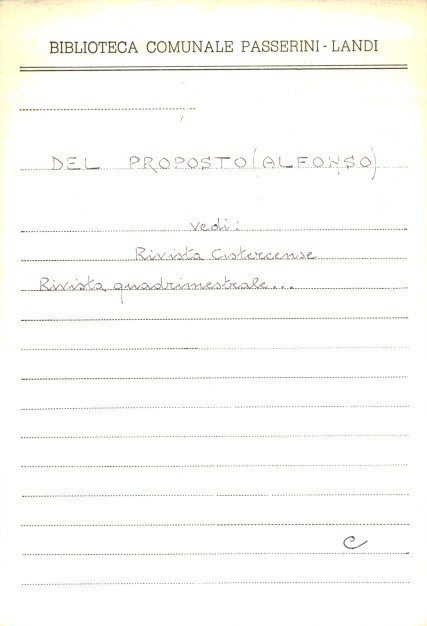 BIBLIOTECA COMUNALE PASSERINI - LANDI
DEL PROPOSTO (ALFONSO)
Vedi:
Rivista Cistercense
Rivista quadrimestrale...
C